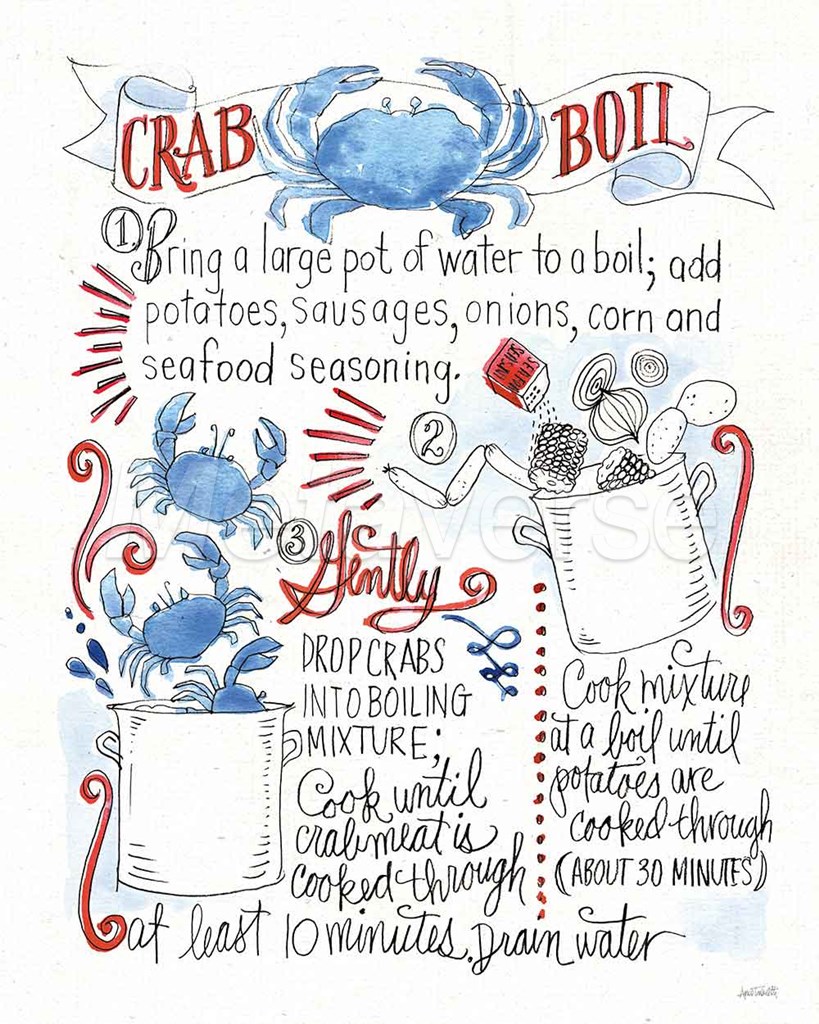 CRAB BOIL
1 Bring a large pot of water to a boil; add
potatoes, sausages, onions, corn and
seafood seasoning.
2
Cook mixture
at a boil until
potatoes are
cooked through
(ABOUT 30 MINUTES)
3 Gently
DROP CRABS
INTO BOILING
MIXTURE;
Cook until
crab meat is
cooked through
at least 10 minutes. Drain water
Metaverse